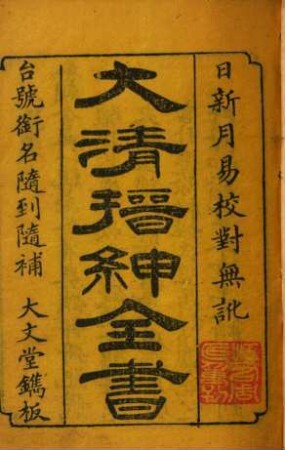 日新月易校對無訛
大清搢紳全書
台號銜名隨到隨補 大文堂鐫板